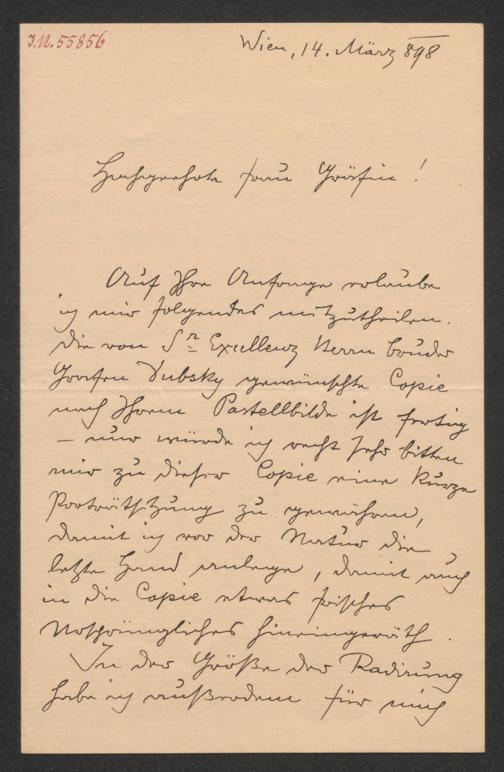 J.N. 55856
Wien, 14. März 898
Hochgeehrte Frau Gräfin!
Auf Ihre Anfrage erlaube
ich mir folgendes mitzutheilen.
Die von Sr Excellenz Herrn Bruder
Grafen Dubsky gewünschte Copie
nach Ihrem Pastellbilde ist fertig
– nur würde ich recht sehr bitten
mir zu dieser Copie eine kurze
Porträtsitzung zu gewähren,
damit ich vor der Natur die
letzte Hand anlege, damit auch
in die Copie etwas frisches
Ursprüngliches hineingeräth.
In der Größe der Radirung
habe ich außerdem für mich